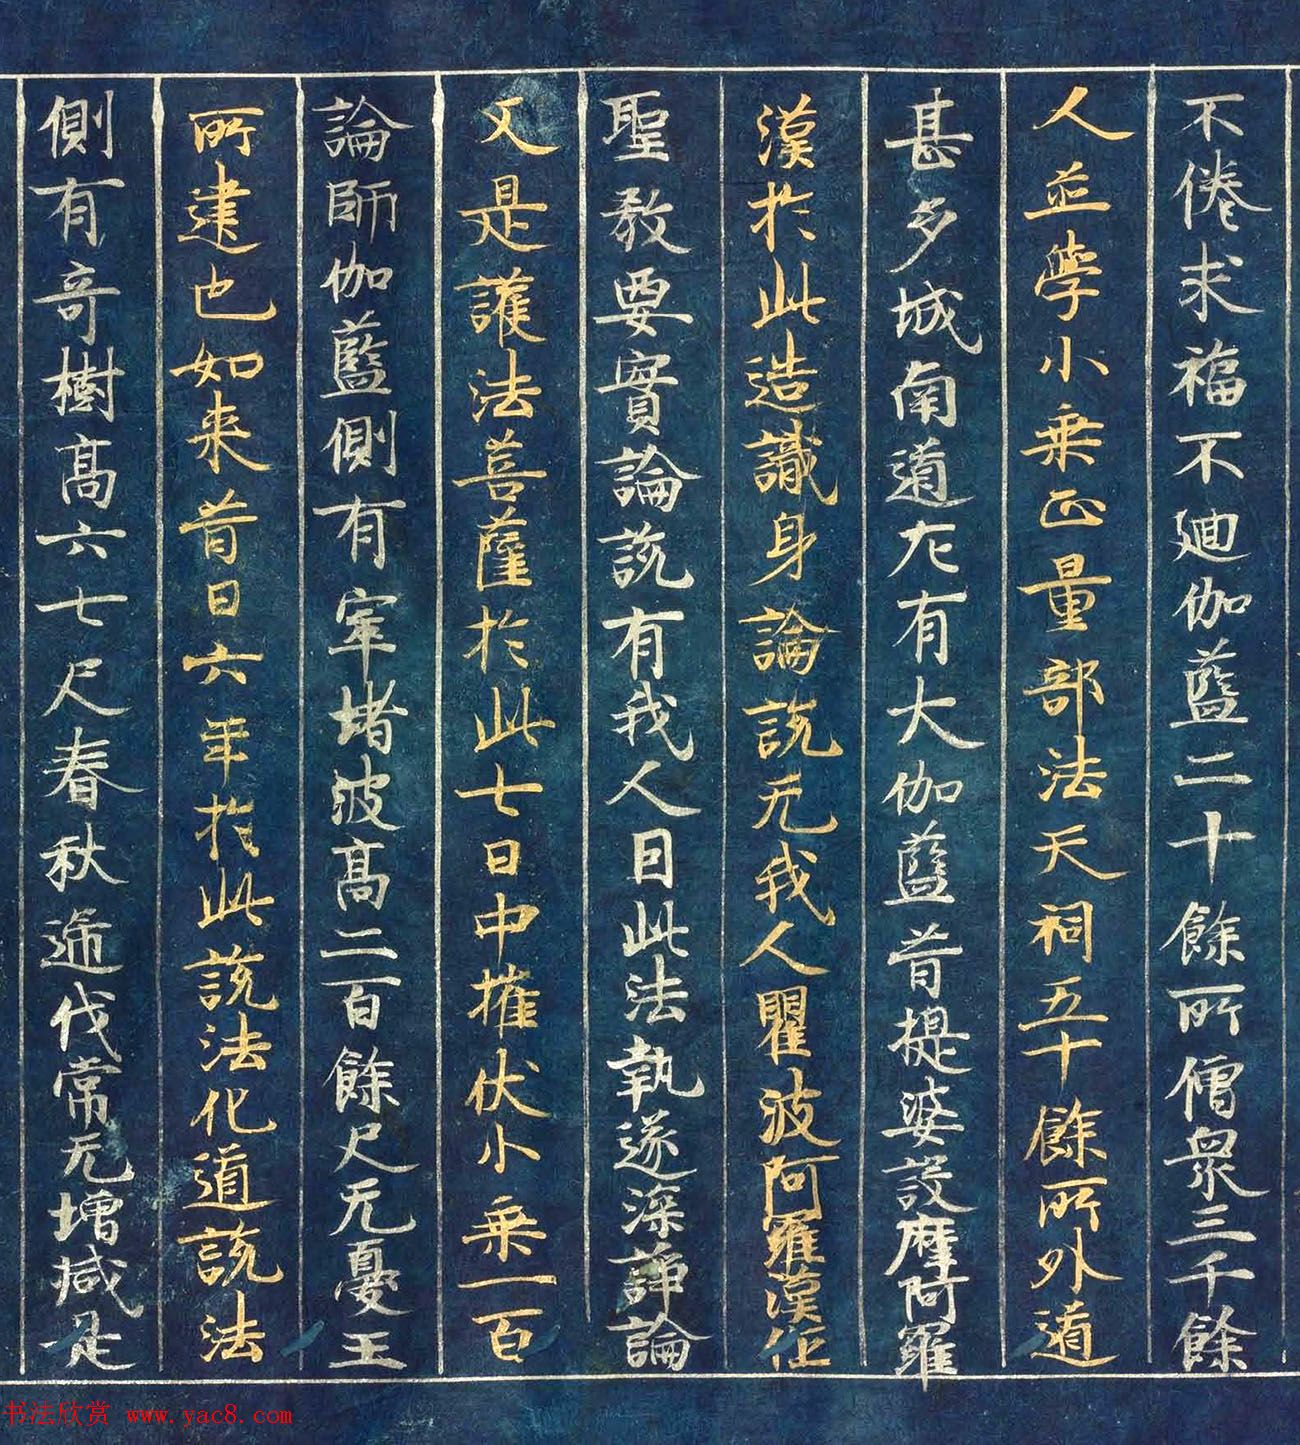 不倦求福不迴伽藍二十餘所僧衆三千餘
人並學小乗正量部法天祠五十餘所外道
甚多城南道左有大伽藍昔提婆設摩阿羅
漢於此造識身論說无我人瞿波阿羅漢作
聖教要實論說有我人因此法執遂深諍論
又是護法菩薩於此七日中摧伏小乗一百
論師伽藍側有窣堵波高二百餘尺无憂王
所建也如来昔日六年於此說法化道說法
側有奇樹高六七尺春秋遞代常无增減是
书法欣赏 www.yac8.com